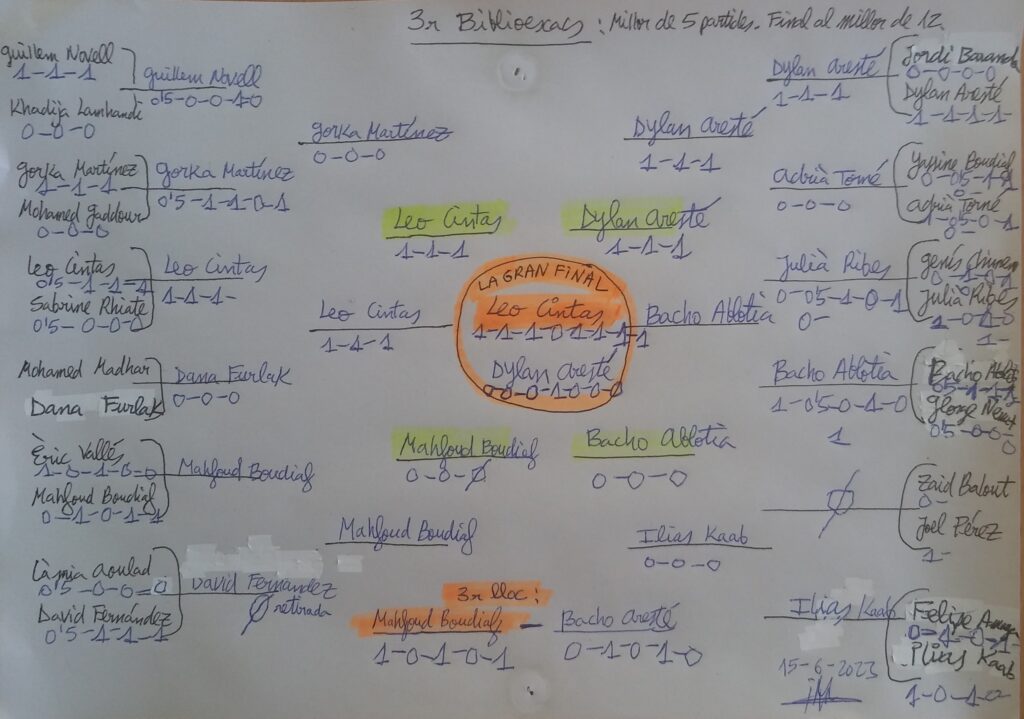 3r Biblioexacs : Millor de 5 partides. Final al millor de 12
Guillem Novell
1-1-1
Khadija Lamhamdi
0-0-0
Gorka Martínez
1-1-1
Mohamed Gaddour
0-0-0
Leo Cintas
0'5-1-1-1
Sabrine Rhiate
0'5-0-0-0
Mohamed Madhar
Dana Furlak
Èric Vallés
1-0-1-0-0
Mahfoud Boudiaf
0-1-0-1-1
Làmia Aoulad
0'5-0-0-0
David Fernández
0'5-1-1-1
Guillem Novell
0'5-0-0-1-0
Gorka Martínez
0'5-1-1-0-1
Leo Cintas
1-1-1-
Dana Furlak
0-0-0
Mahfoud Boudiaf
David Fernández
0 retirada
Gorka Martínez
0-0-0
Leo Cintas
1-1-1
Mahfoud Boudiaf
Leo Cintas
1-1-1
Mahfoud Boudiaf
0-0-0
LA GRAN FINAL
Leo Cintas
1-1-1-0-1-1-1-1
Dylan Aresté
0-0-0-1-0-0-0
3r lloc:
Mahfoud Boudiafs - Bacho Aresté
1-0-1-0-1
0-1-0-1-0
Dylan Aresté
1-1-1
Bacho Ablotia
0-0-0
Dylan Aresté
1-1-1
Bacho Ablotia
Ilias Kaab
0-0-0
Dylan Aresté
1-1-1
Adrià Torné
0-0-0
Julià Ribes
0-0'5-1-0-1
0-
Bacho Ablotia
1-0'5-0-1-0
1
0
Ilias Kaab
Jordi
0-0-0-0
Dylan Aresté
1-1-1-1-
Yassine Boudiaf
0-0'5-1-1
0-
Adrià Torné
1-0'5-0-1
0-
Genís
Julià Ribes
1-0-1-
1-
Bacho
0'5-1-1-1
George
0'5-0-0-
0
Zaid Balout
0-
Joel Pérez
1-
Felipe
Ilias Kaab
1-0-1-
15-6-2023